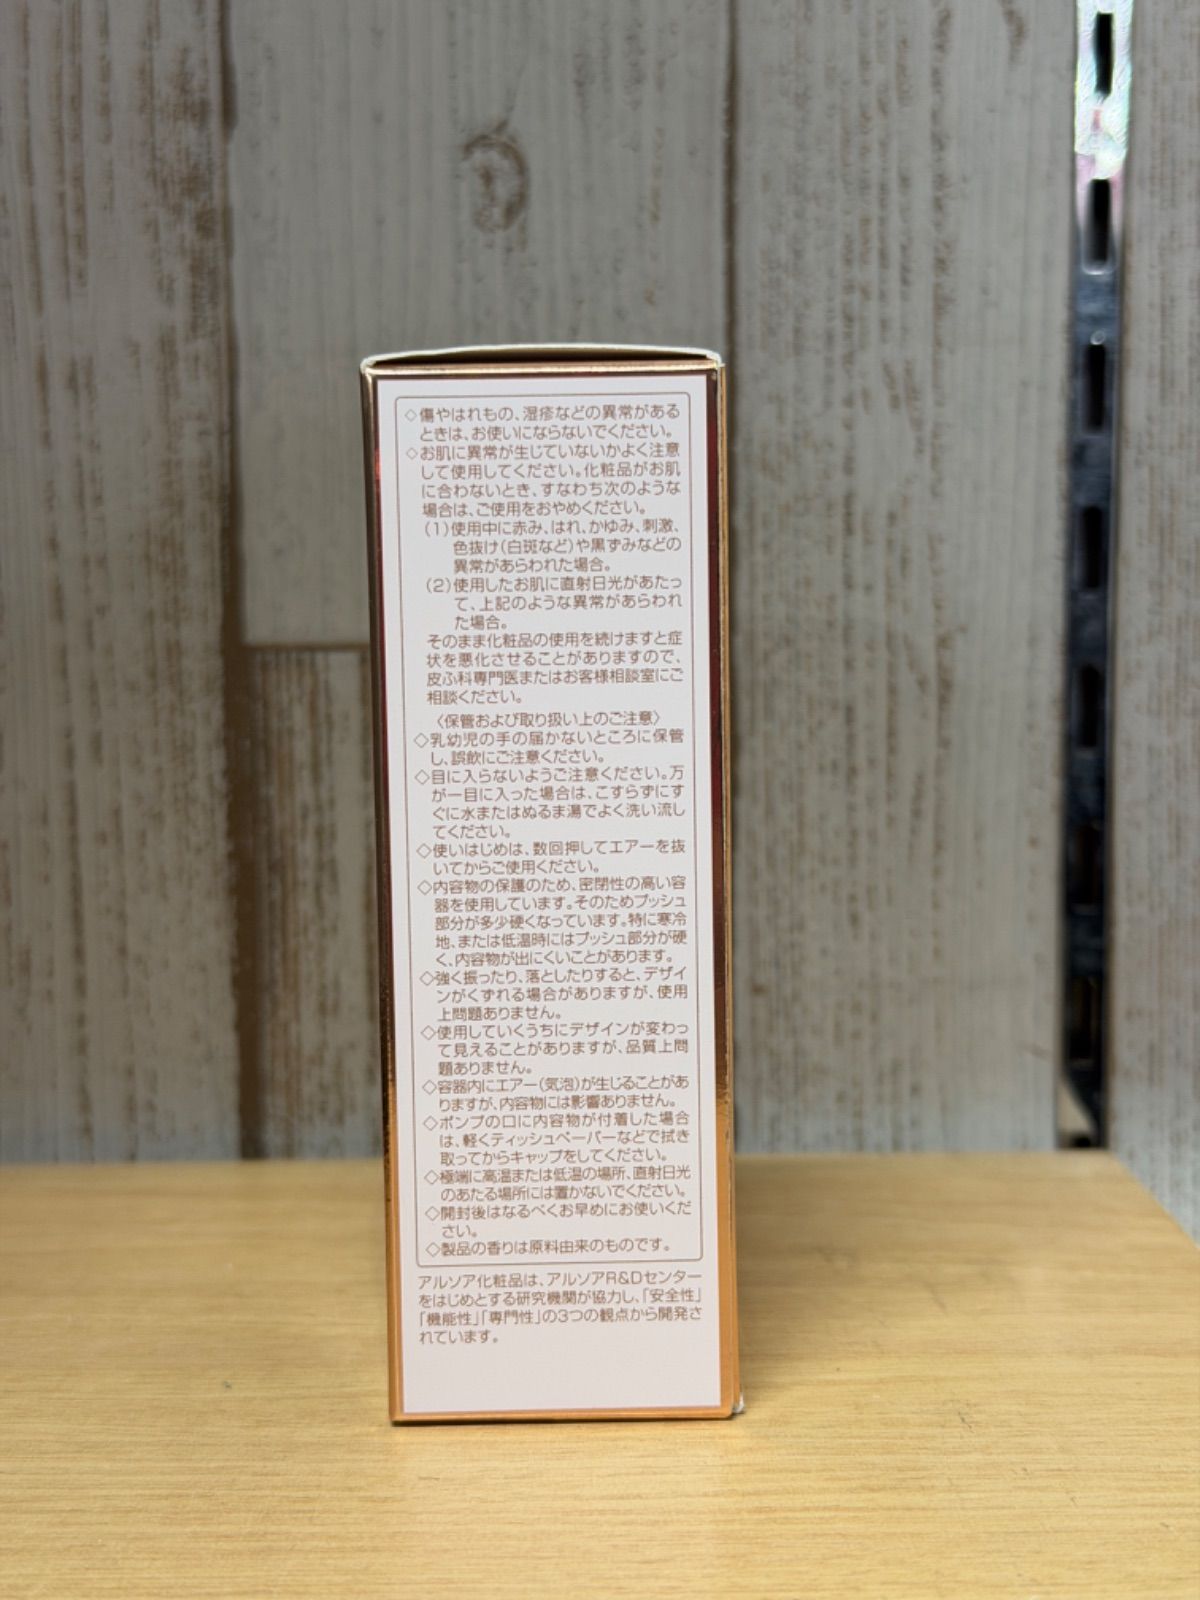 ◇傷やはれもの、湿疹などの異常がある
ときは、お使いにならないでください。
◇お肌に異常が生じていないかよく注意
して使用してください。化粧品がお肌
に合わないとき、すなわち次のような
場合は、ご使用をおやめください。
(1)使用中に赤み、はれ、かゆみ、刺激、
色抜け(白斑など)や黒ずみなどの
異常があらわれた場合。
(2)使用したお肌に直射日光があたっ
て、上記のような異常があらわれ
た場合。
そのまま化粧品の使用を続けますと症
状を悪化させることがありますので、
皮ふ科専門医またはお客様相談室にご
相談ください。
〈保管および取り扱い上のご注意〉
◇乳幼児の手の届かないところに保管
し、誤飲にご注意ください。
◇目に入らないようご注意ください。万
が一目に入った場合は、こすらずにす
ぐに水またはぬるま湯でよく洗い流し
てください。
◇使いはじめは、数回押してエアーを抜
いてからご使用ください。
◇内容物の保護のため、密閉性の高い容
器を使用しています。そのためプッシュ
部分が多少硬くなっています。特に寒冷
地、または低温時にはプッシュ部分が硬
く、内容物が出にくいことがあります。
◇強く振ったり、落としたりすると、デザイ
ンがくずれる場合がありますが、使用
上問題ありません。
◇使用していくうちにデザインが変わっ
て見えることがありますが、品質上問
題ありません。
◇容器内にエアー(気泡)が生じることがあ
りますが、内容物には影響ありません。
◇ポンプの口に内容物が付着した場合
は、軽くティッシュペーパーなどで拭き
取ってからキャップをしてください。
◇極端に高温または低温の場所、直射日光
のあたる場所には置かないでください。
◇開封後はなるべくお早めにお使いくだ
さい。
◇製品の香りは原料由来のものです。
アルソア化粧品は、アルソアR&Dセンター
をはじめとする研究機関が協力し、「安全性」
「機能性」「専門性」の3つの観点から開発さ
れています。